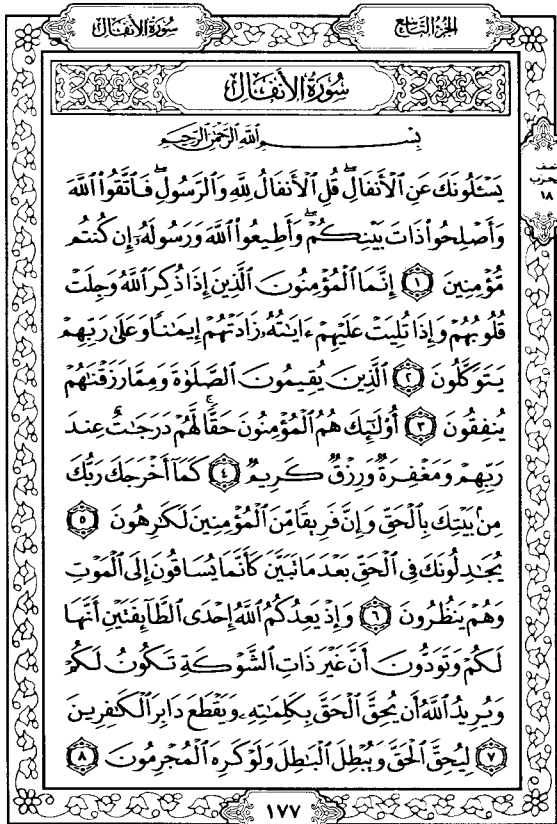 سُورَةُ الْأَنفَالِ
الجُزْءُ التَّاسِعُ
سُورَةُ الْأَنفَالِ
بِسْمِ اللَّهِ الرَّحْمَٰنِ الرَّحِيمِ
نصف
الحزب
١٨
يَسْـَٔلُونَكَ عَنِ ٱلْأَنفَالِۖ قُلِ ٱلْأَنفَالُ لِلَّهِ وَٱلرَّسُولِۖ فَٱتَّقُوا۟ ٱللَّهَ
وَأَصْلِحُوا۟ ذَاتَ بَيْنِكُمْۖ وَأَطِيعُوا۟ ٱللَّهَ وَرَسُولَهُۥٓ إِن كُنتُم
مُّؤْمِنِينَ ١ إِنَّمَا ٱلْمُؤْمِنُونَ ٱلَّذِينَ إِذَا ذُكِرَ ٱللَّهُ وَجِلَتْ
قُلُوبُهُمْ وَإِذَا تُلِيَتْ عَلَيْهِمْ ءَايَـٰتُهُۥ زَادَتْهُمْ إِيمَـٰنًا وَعَلَىٰ رَبِّهِمْ
يَتَوَكَّلُونَ ٢ ٱلَّذِينَ يُقِيمُونَ ٱلصَّلَوٰةَ وَمِمَّا رَزَقْنَـٰهُمْ
يُنفِقُونَ ٣ أُو۟لَـٰٓئِكَ هُمُ ٱلْمُؤْمِنُونَ حَقًّاۚ لَّهُمْ دَرَجَـٰتٌ عِندَ
رَبِّهِمْ وَمَغْفِرَةٌ وَرِزْقٌ كَرِيمٌ ٤ كَمَآ أَخْرَجَكَ رَبُّكَ
مِنۢ بَيْتِكَ بِٱلْحَقِّ وَإِنَّ فَرِيقًا مِّنَ ٱلْمُؤْمِنِينَ لَكَـٰرِهُونَ ٥
يُجَـٰدِلُونَكَ فِى ٱلْحَقِّ بَعْدَ مَا تَبَيَّنَ كَأَنَّمَا يُسَاقُونَ إِلَى ٱلْمَوْتِ
وَهُمْ يَنظُرُونَ ٦ وَإِذْ يَعِدُكُمُ ٱللَّهُ إِحْدَى ٱلطَّآئِفَتَيْنِ أَنَّهَا
لَكُمْ وَتَوَدُّونَ أَنَّ غَيْرَ ذَاتِ ٱلشَّوْكَةِ تَكُونُ لَكُمْ
وَيُرِيدُ ٱللَّهُ أَن يُحِقَّ ٱلْحَقَّ بِكَلِمَـٰتِهِۦ وَيَقْطَعَ دَابِرَ ٱلْكَـٰفِرِينَ
٧ لِيُحِقَّ ٱلْحَقَّ وَيُبْطِلَ ٱلْبَـٰطِلَ وَلَوْ كَرِهَ ٱلْمُجْرِمُونَ ٨
١٧٧